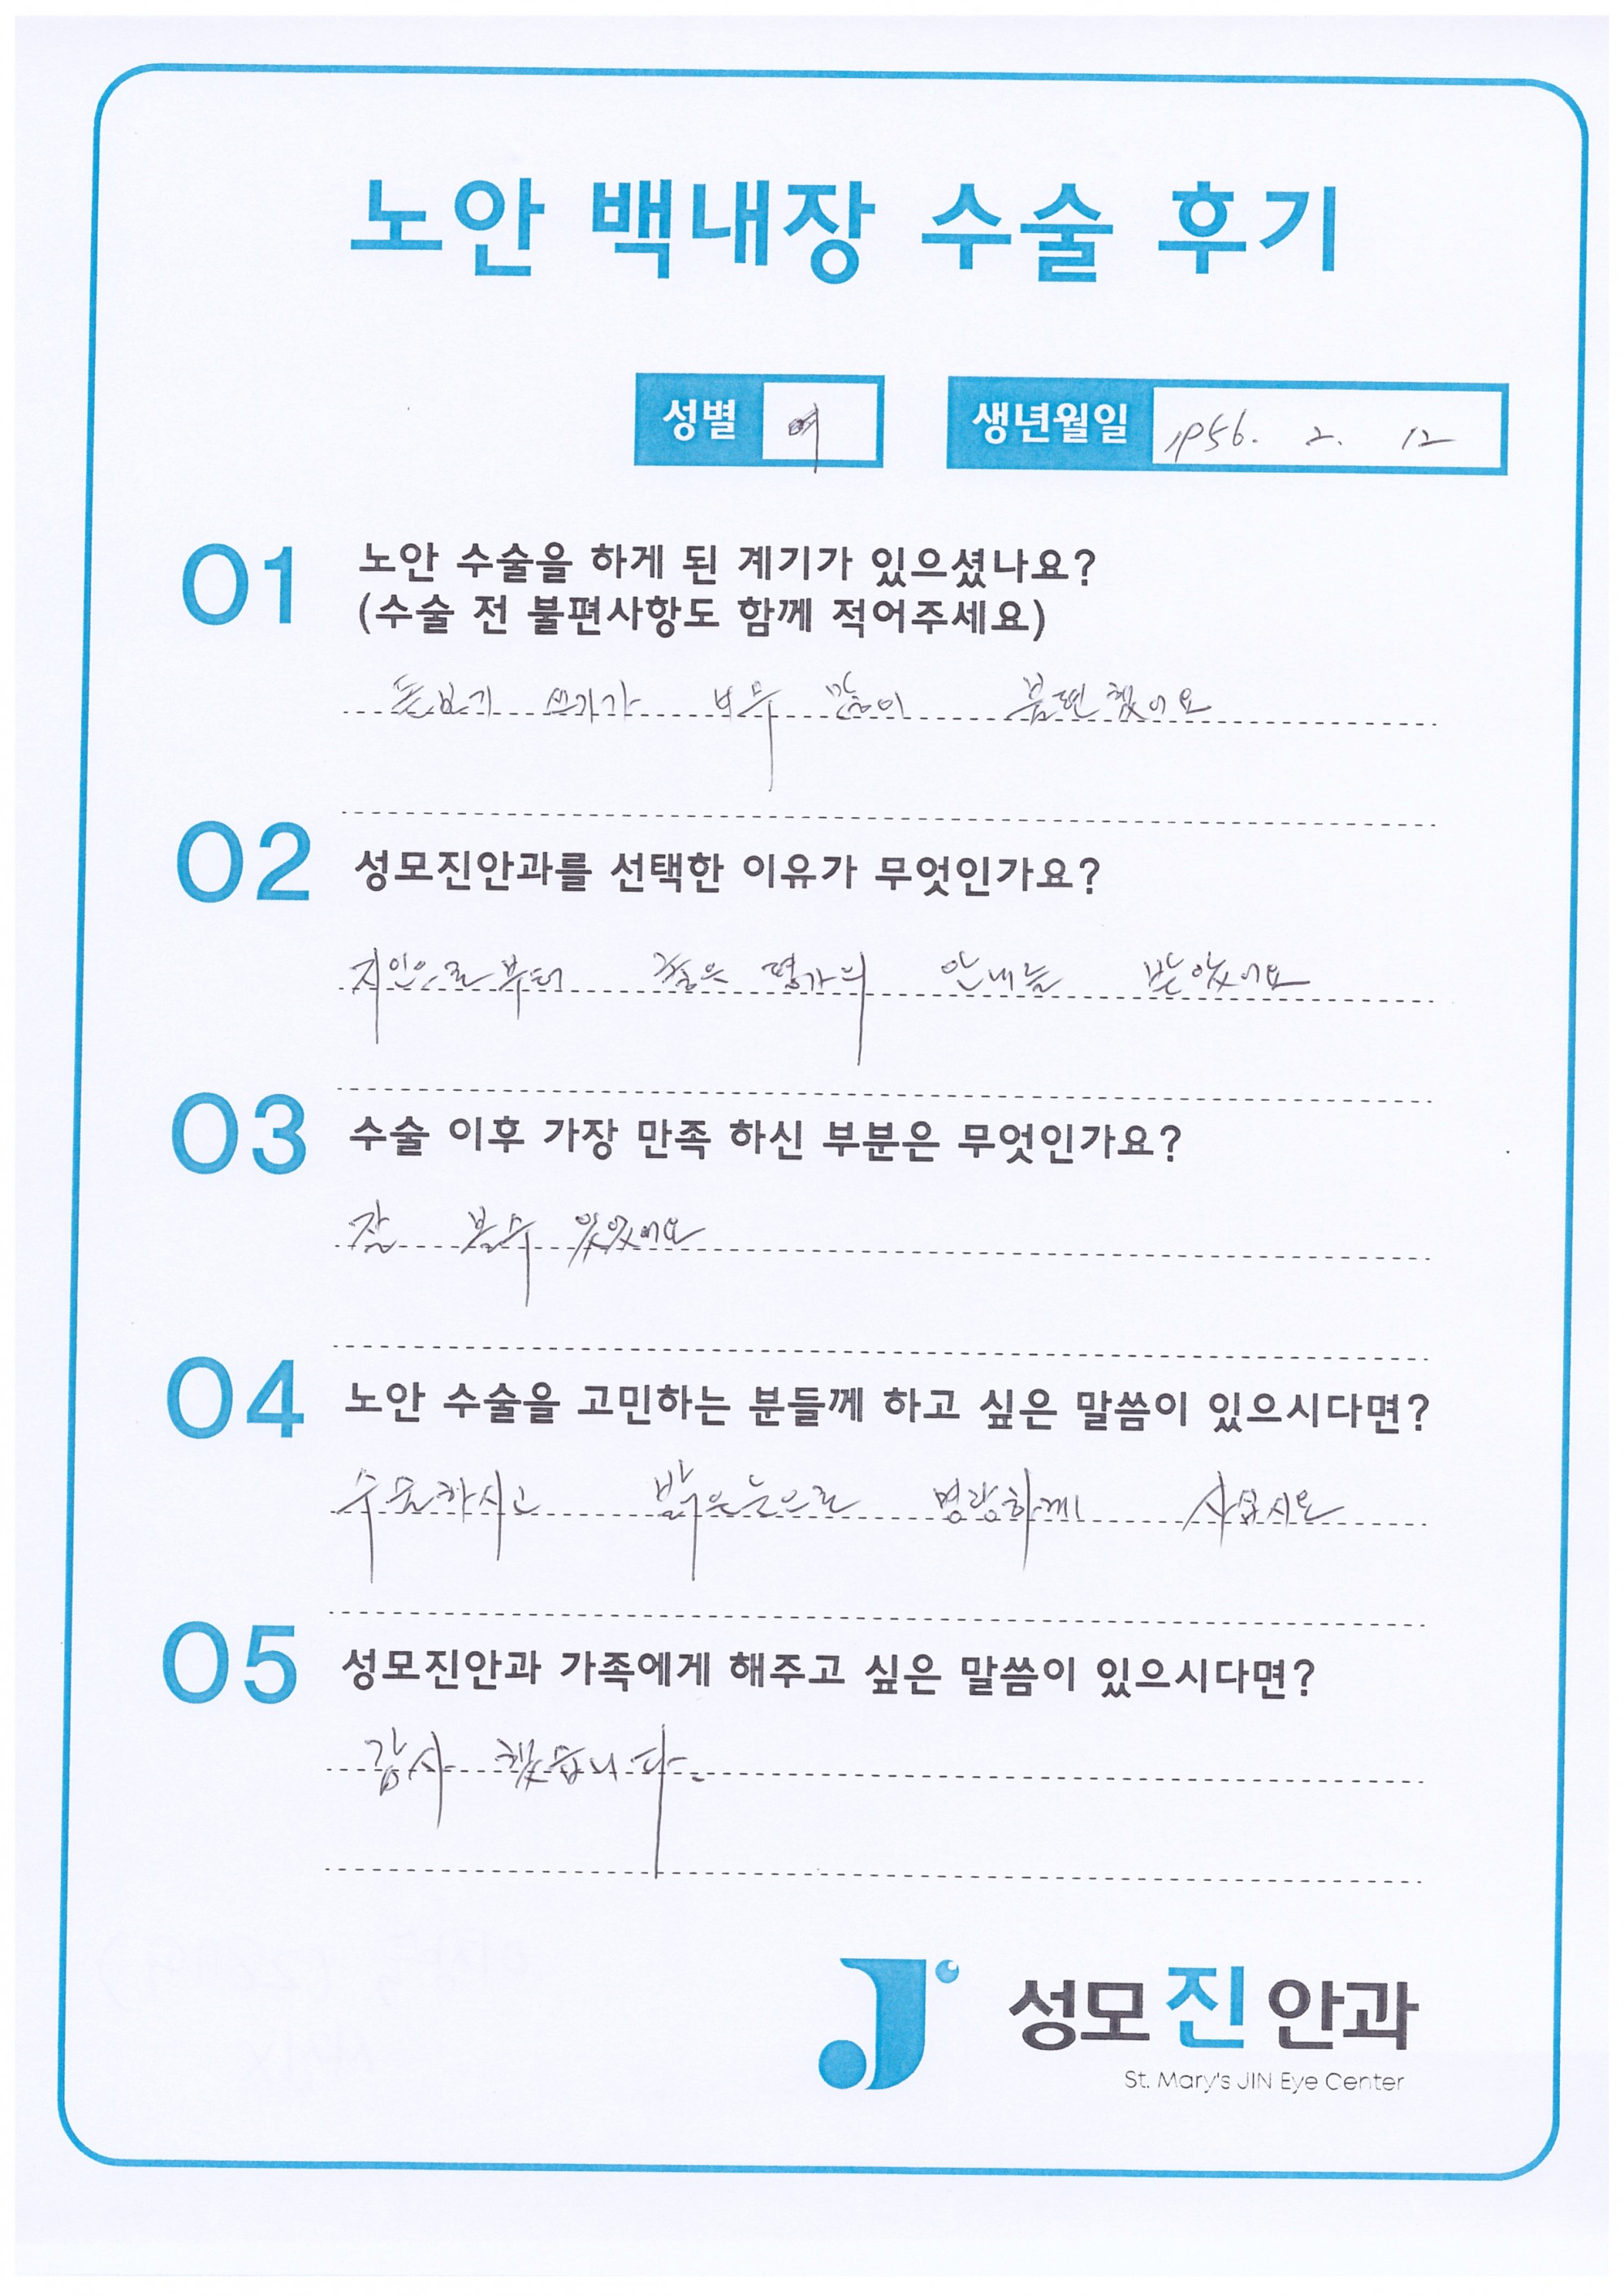 노안 백내장 수술 후기
성별 여 생년월일 1956. 2. 12
01 노안 수술을 하게 된 계기가 있으셨나요?
(수술 전 불편사항도 함께 적어주세요)
돋보기 쓰기가 너무 많이 불편했어요
02 성모진안과를 선택한 이유가 무엇인가요?
지인으로부터 좋은 평가의 안내를 받았어요
03 수술 이후 가장 만족 하신 부분은 무엇인가요?
잘 볼수 있었어요
04 노안 수술을 고민하는 분들께 하고 싶은 말씀이 있으시다면?
수술하시고 밝은눈으로 명랑하게 사십시요
05 성모진안과 가족에게 해주고 싶은 말씀이 있으시다면?
감사 했습니다.
성모진안과
St. Mary's JIN Eye Center